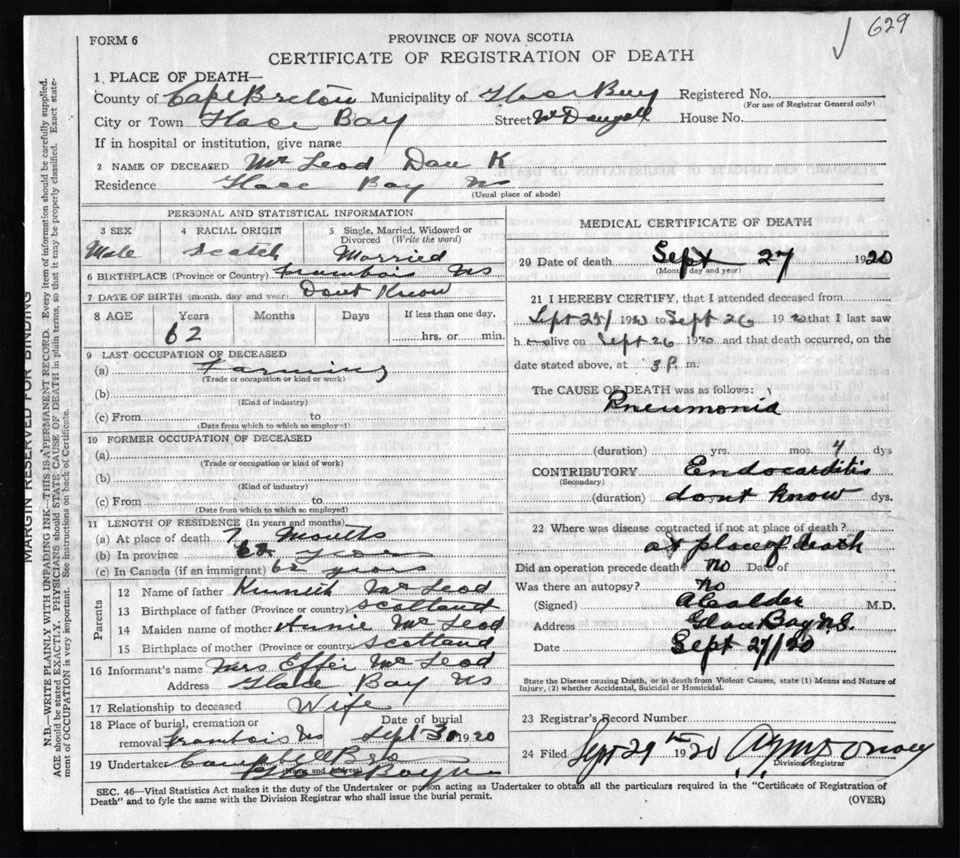 629
FORM 6
PROVINCE OF NOVA SCOTIA
CERTIFICATE OF REGISTRATION OF DEATH
MARGIN RESERVED FOR BINDING
N.B.—WRITE PLAINLY WITH UNFADING INK—THIS IS A PERMANENT RECORD. Every item of information should be carefully supplied.
AGE should be stated EXACTLY. PHYSICIANS should STATE CAUSE OF DEATH in plain terms, so that it may be properly classified. Exact state-
ment of OCCUPATION is very important. See instructions on back of Certificate.
1 PLACE OF DEATH—
County of Cape Breton Municipality of Glace Bay Registered No.
(For use of Registrar General only)
City or Town Glace Bay Street House No.
If in hospital or institution, give name
2 NAME OF DECEASED Mc Leod Dan K
Residence Glace Bay NS
(Usual place of abode)
PERSONAL AND STATISTICAL INFORMATION
3 SEX 4 RACIAL ORIGIN 5 Single, Married, Widowed or Divorced (Write the word)
Male Scotch Married
6 BIRTHPLACE (Province or Country) Frambois NS
7 DATE OF BIRTH (month, day and year) Dont Know
8 AGE Years Months Days If less than one day,
62 hrs. or min.
9 LAST OCCUPATION OF DECEASED
(a) Farming
(Trade or occupation or kind or work)
(b)
(Kind of industry)
(c) From to
(Date from which to which so employed)
10 FORMER OCCUPATION OF DECEASED
(a)
(Trade or occupation or kind of work)
(b)
(Kind of industry)
(c) From to
(Date from which to which so employed)
11 LENGTH OF RESIDENCE (In years and months)
(a) At place of death 7 Months
(b) In province 62 years
(c) In Canada (if an immigrant) 62 years
Parents
12 Name of father Kenneth Mc Leod
13 Birthplace of father (Province or country) Scotland
14 Maiden name of mother Annie Mc Leod
15 Birthplace of mother (Province or country) Scotland
16 Informant's name Mrs Effie Mc Leod
Address Glace Bay NS
17 Relationship to deceased Wife
18 Place of burial, cremation or Date of burial
removal Frambois NS Sept 30 1920
19 Undertaker
(Name and Address)
MEDICAL CERTIFICATE OF DEATH
20 Date of death Sept 27 1920
(Month, day and year)
21 I HEREBY CERTIFY, that I attended deceased from
Sept 25 1920 to Sept 26 1920 that I last saw
h alive on Sept 26 1920 and that death occurred, on the
date stated above, at 3 P. m.
The CAUSE OF DEATH was as follows:
Pneumonia
(duration) yrs. mos. 4 dys
CONTRIBUTORY Endocarditis
(Secondary)
(duration) dont know dys.
22 Where was disease contracted if not at place of death?
at place of death
Did an operation precede death no Date of
Was there an autopsy? no
(Signed) A Calder M.D.
Address Glace Bay N.S.
Date Sept 27/20
State the Disease causing Death, or in death from Violent Causes, state (1) Means and Nature of
Injury, (2) whether Accidental, Suicidal or Homicidal.
23 Registrar's Record Number
24 Filed Sept 29th 1920
Division Registrar
SEC. 46—Vital Statistics Act makes it the duty of the Undertaker or person acting as Undertaker to obtain all the particulars required in the "Certificate of Registration of
Death" and to fyle the same with the Division Registrar who shall issue the burial permit.
(OVER)